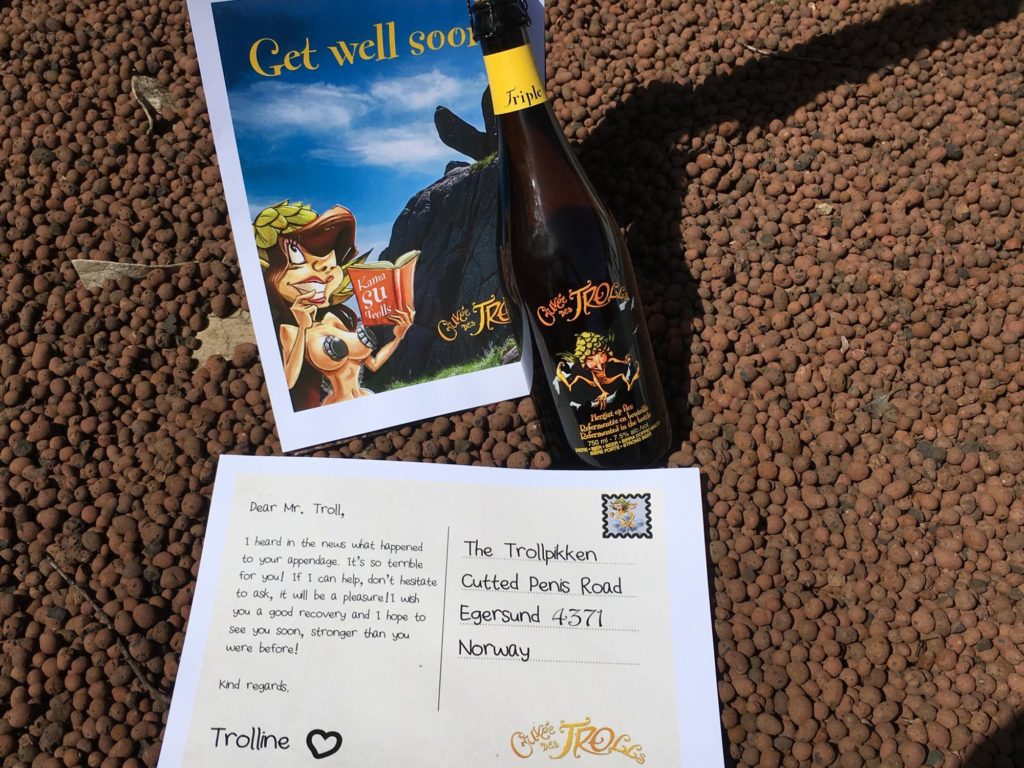 Get well soon
Kama
su
Trolls
Cuvée
des Tro
Triple
Cuvée
des Trolls
Hergist op fles
Refermentée en bouteille
Refermented in the bottle
750 ml - 7.5% alc./vol.
BIÈRE FORTE - STRONG BEER
Dear Mr. Troll,
I heard in the news what happened
to your appendage. It's so terrible
for you! If I can help, don't hesitate
to ask, it will be a pleasure!I wish
you a good recovery and I hope to
see you soon, stronger than you
were before!
Kind regards.
Trolline
The Trollpikken
Cutted Penis Road
Egersund 4371
Norway
Cuvée
des Trolls